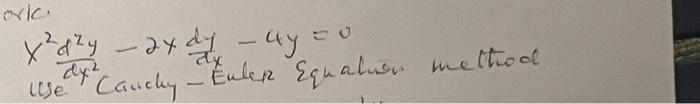 x² d²y/dx² - 2x dy/dx - 4y = 0
use Cauchy - Euler Equation method